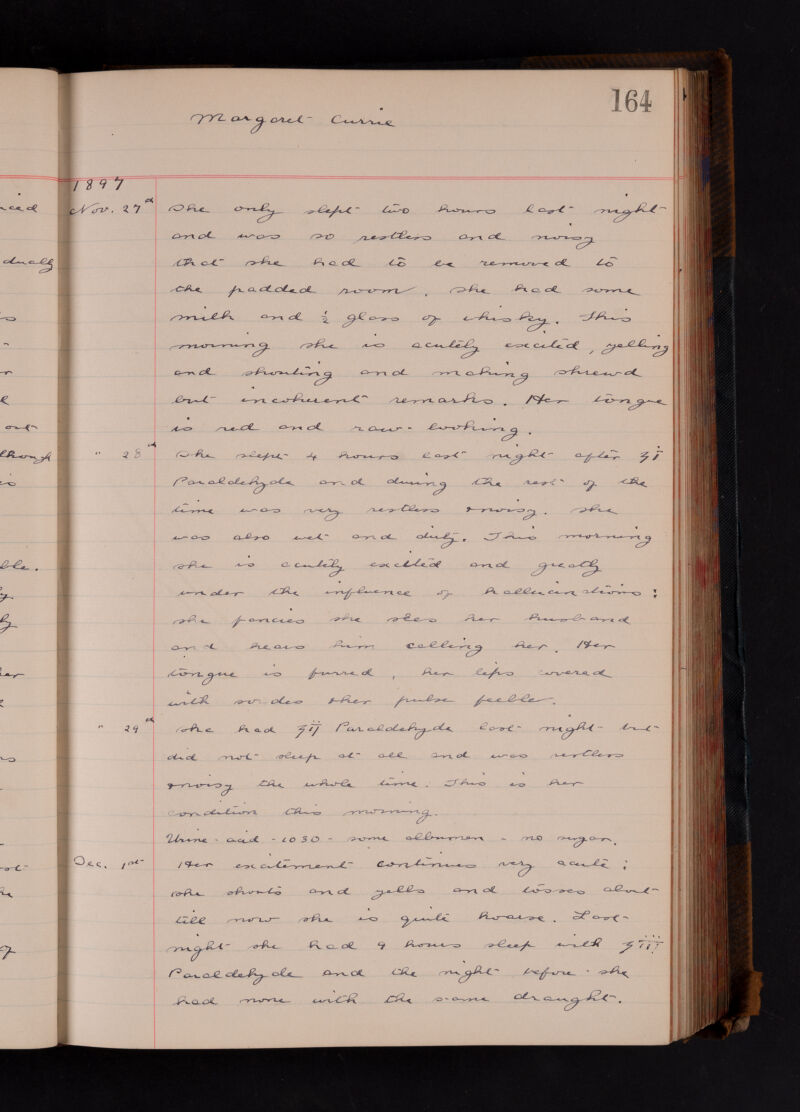 164
Margaret Currie
1897
Nov. 27th She only slept two hours last night
and was so restless and noisy
that she had to be removed to
the padded room. She had some
milk and ½ glass of whisky. This
morning she is acutely excited, yelling
and shouting and making shrewd
but incoherent remarks. Her tongue
is red and raw-looking.
" 28th She slept 4 hours last night after ʒi
Paraldehyde and during the rest of the
time was very restless & noisy. She
was also wet and dirty. This morning
she is acutely excited and greatly
under the influence of hallucinations;
she fancies she sees her husband
and hears him calling her. Her
tongue is furred, her lips covered
with sordes & her pulse feebler.
" 29th She had ʒii Paraldehyde last night but
did not sleep at all and was restless
& noisy the whole time. This is her
condition this morning.
Urine - acid - 1030 - some albumen - no sugar.
Dec. 1st Her excitement continues very acute;
she shouts and yells and tosses about
till now she is quite hoarse. Last
night she had 9 hours sleep with ʒiii
Paraldehyde and the night before she
had none with the same draught.
ced
dually
out
though
ble.